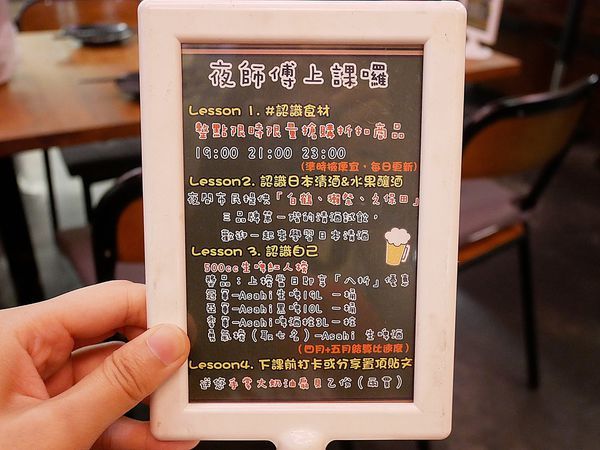 夜師傅上課囉
Lesson 1. #認識食材
整點限時限量搶購折扣商品
19:00 21:00 23:00
(準時搶便宜，每日更新)
Lesson2. 認識日本清酒&水果釀酒
夜間市民提供「白鶴、獺祭、久保田」
三品牌第一階的清酒試飲，
歡迎一起來學習日本清酒
Lesson 3. 認識自己
500cc生啤紅人榜
獎品：上榜當日即享「八折」優惠
冠軍-Asahi生啤19L 一桶
亞軍-Asahi黑啤10L 一桶
季軍-Asahi啤酒柱3L一柱
勇氣榜（取七名）-Asahi 生啤酒
(四月+五月結算比速度)
Lesoon4. 下課前打卡或分享置頂貼文
送您手掌大奶油扇貝乙份（兩賣）